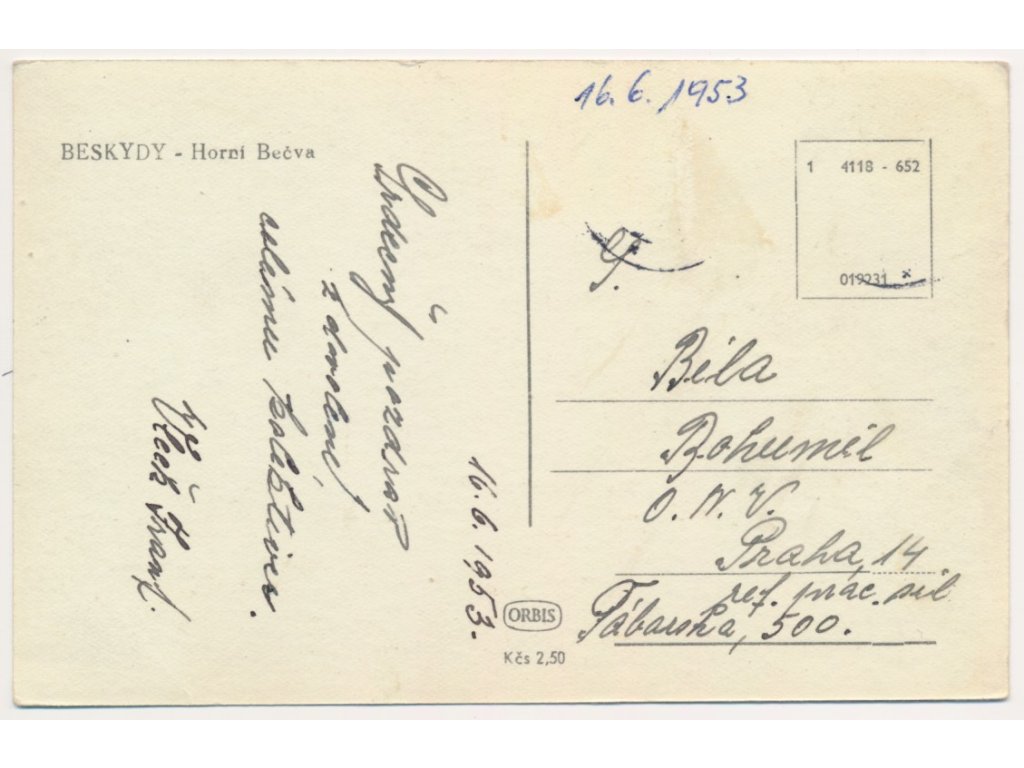 16. 6. 1953
BESKYDY - Horní Bečva
1 4118 - 652
019231
Srdečný pozdrav
z dovolené
celému kolektivu.
Vlček Frant.
16. 6. 1953.
Běla
Bohumil
O. N. V.
Praha, 14
ref. prac. sil
Táborská, 500.
ORBIS
Kčs 2,50